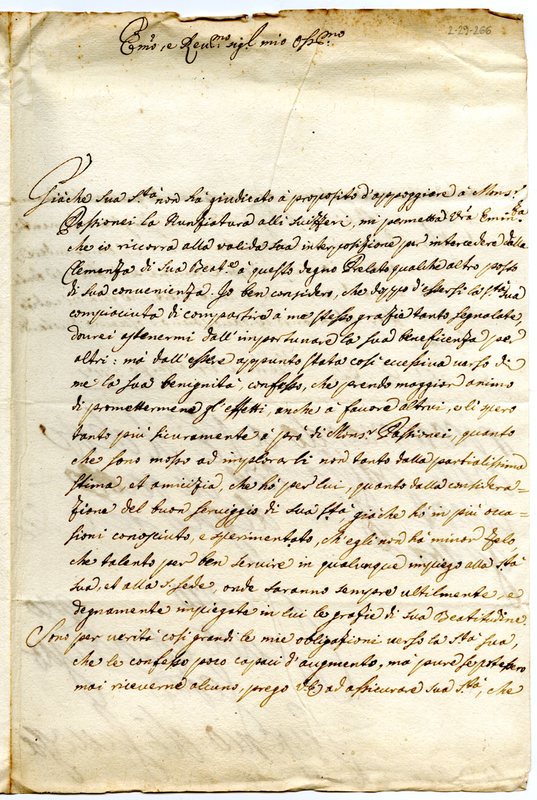 2-29-266
Em.o, e Reu.mo sig.r mio Oss.mo
Giache Sua S.tà non hà giudicato à proposito d'appoggiare à Mons.r
Passionei la Nunziatura alli Suizzeri, mi permetta V.ra Emin.za
che io riccorra alla valida sua interposizione per intercedere dalla
Clemenza di Sua Beat.e à questo degno Prelato qualche altro posto
di sua convenienza. Io ben considero, che doppo d'essersi la S.tà Sua
compiaciuta di compartire à me stesso grazie tanto segnalate,
dourei astenermi dall'importunare la sua beneficenza per
altri: mà dall'essere appunto stata così eccessiva verso di
me la sua benignità, confesso, che prendo maggior animo
di promettermene gl'effetti, anche à favore altrui, e li spero
tanto più sicuramente à prò di Mons.r Passionei, quanto
che sono mosso ad implorarli non tanto dalla partialissima
stima, et amicizia, che hò per lui, quanto dalla considera=
zione del buon serviggio di Sua S.tà giache hò in più occa=
sioni conosciuto, e sperimentato, ch'egli non hà minor zelo
che talento per ben servire in qualunque impiego alla S.tà
sua, et alla S. Sede, onde saranno sempre utilmente, e
degnamente impiegate in lui le grazie di Sua Beatitudine.
Sono per verità così grandi le mie obligazioni verso la S.tà Sua,
che le confesso poco capaci d'augmento, mà pure se potessero
mai riceverne alcuno, prego V.E. ad assicurare Sua S.tà, che